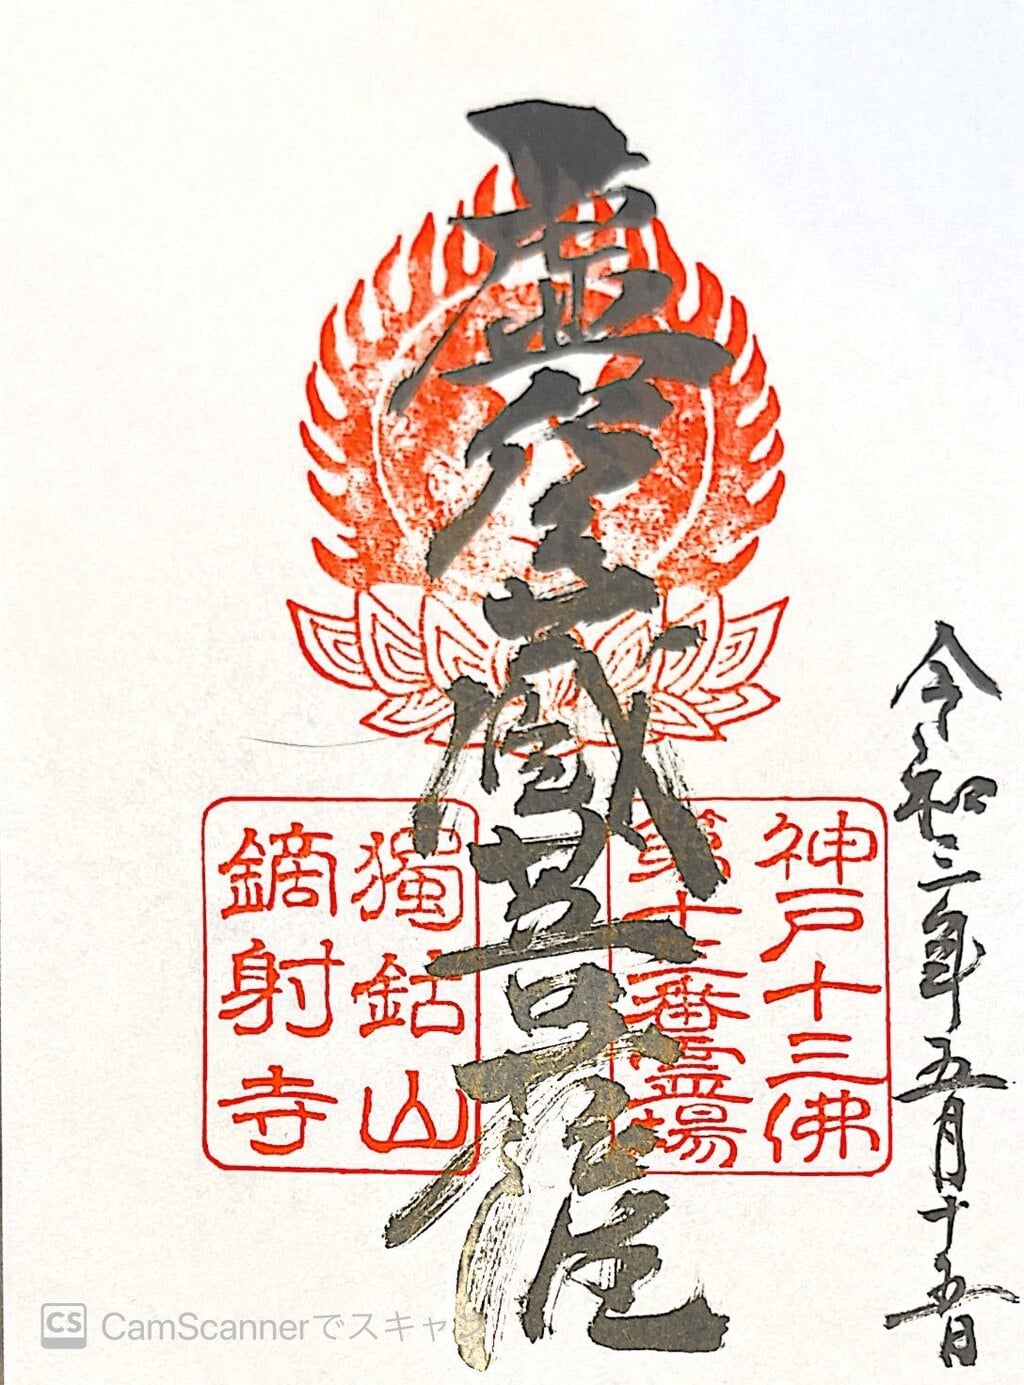 令和三年五月十五日
虚空蔵菩薩
神戸十三佛
第十三番霊場
獨鈷山
鏑射寺
CS CamScannerでスキャン